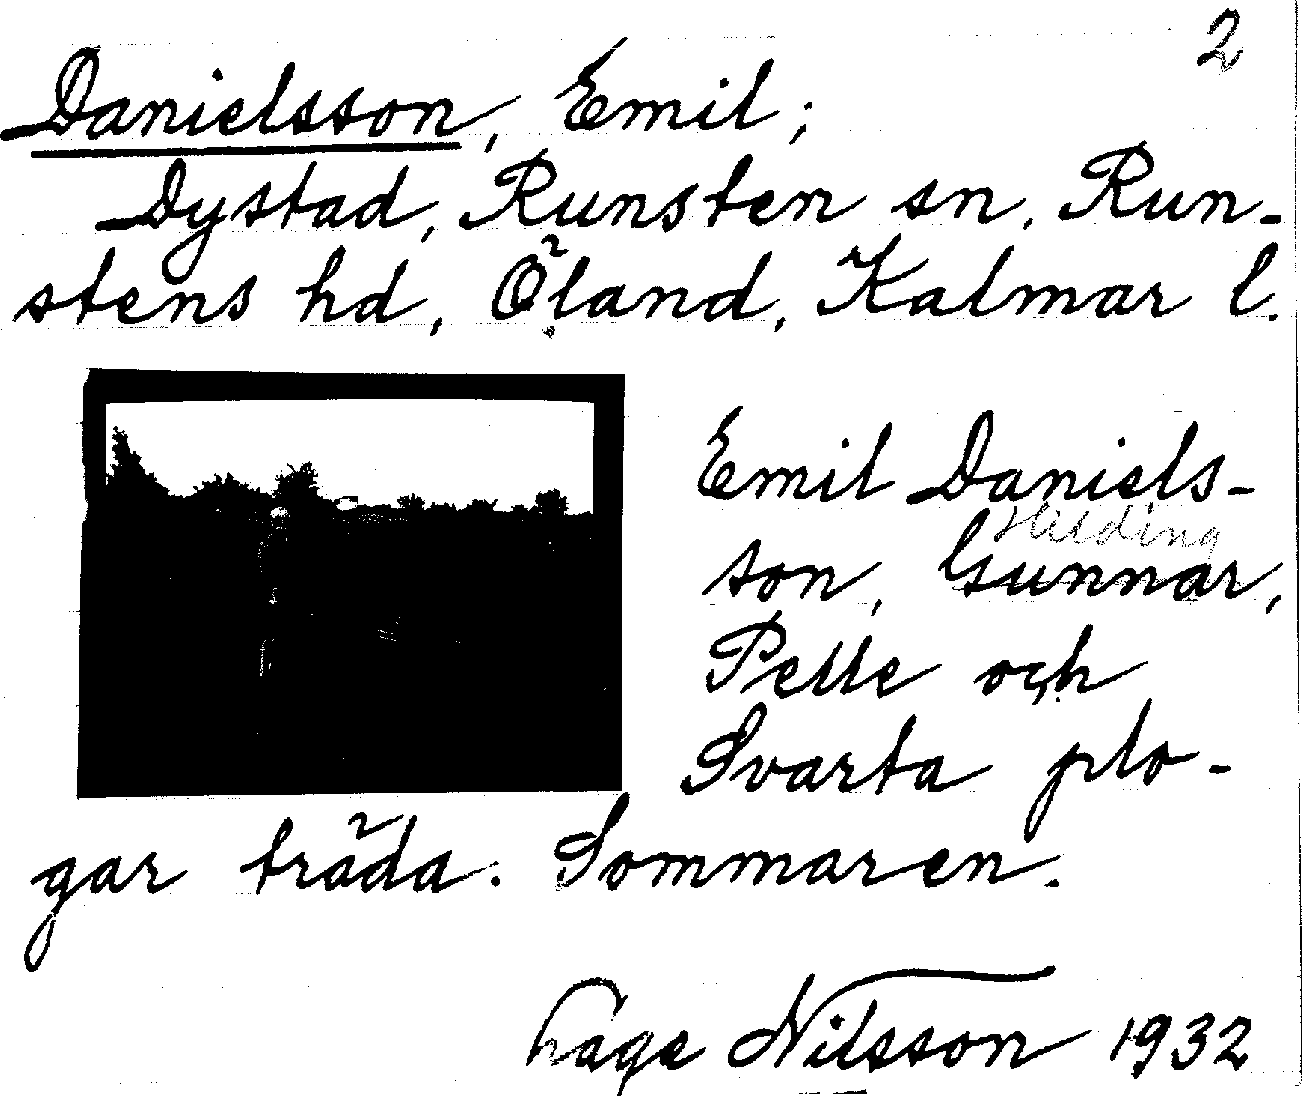 2
Danielsson, Emil;
Dystad, Runsten sn, Run-
stens hd, Öland, Kalmar l.
Emil Daniels-
Hilding
son, Gunnar,
Pelle och
Svarta plo-
gar träda. Sommaren.
Hage Nilsson 1932